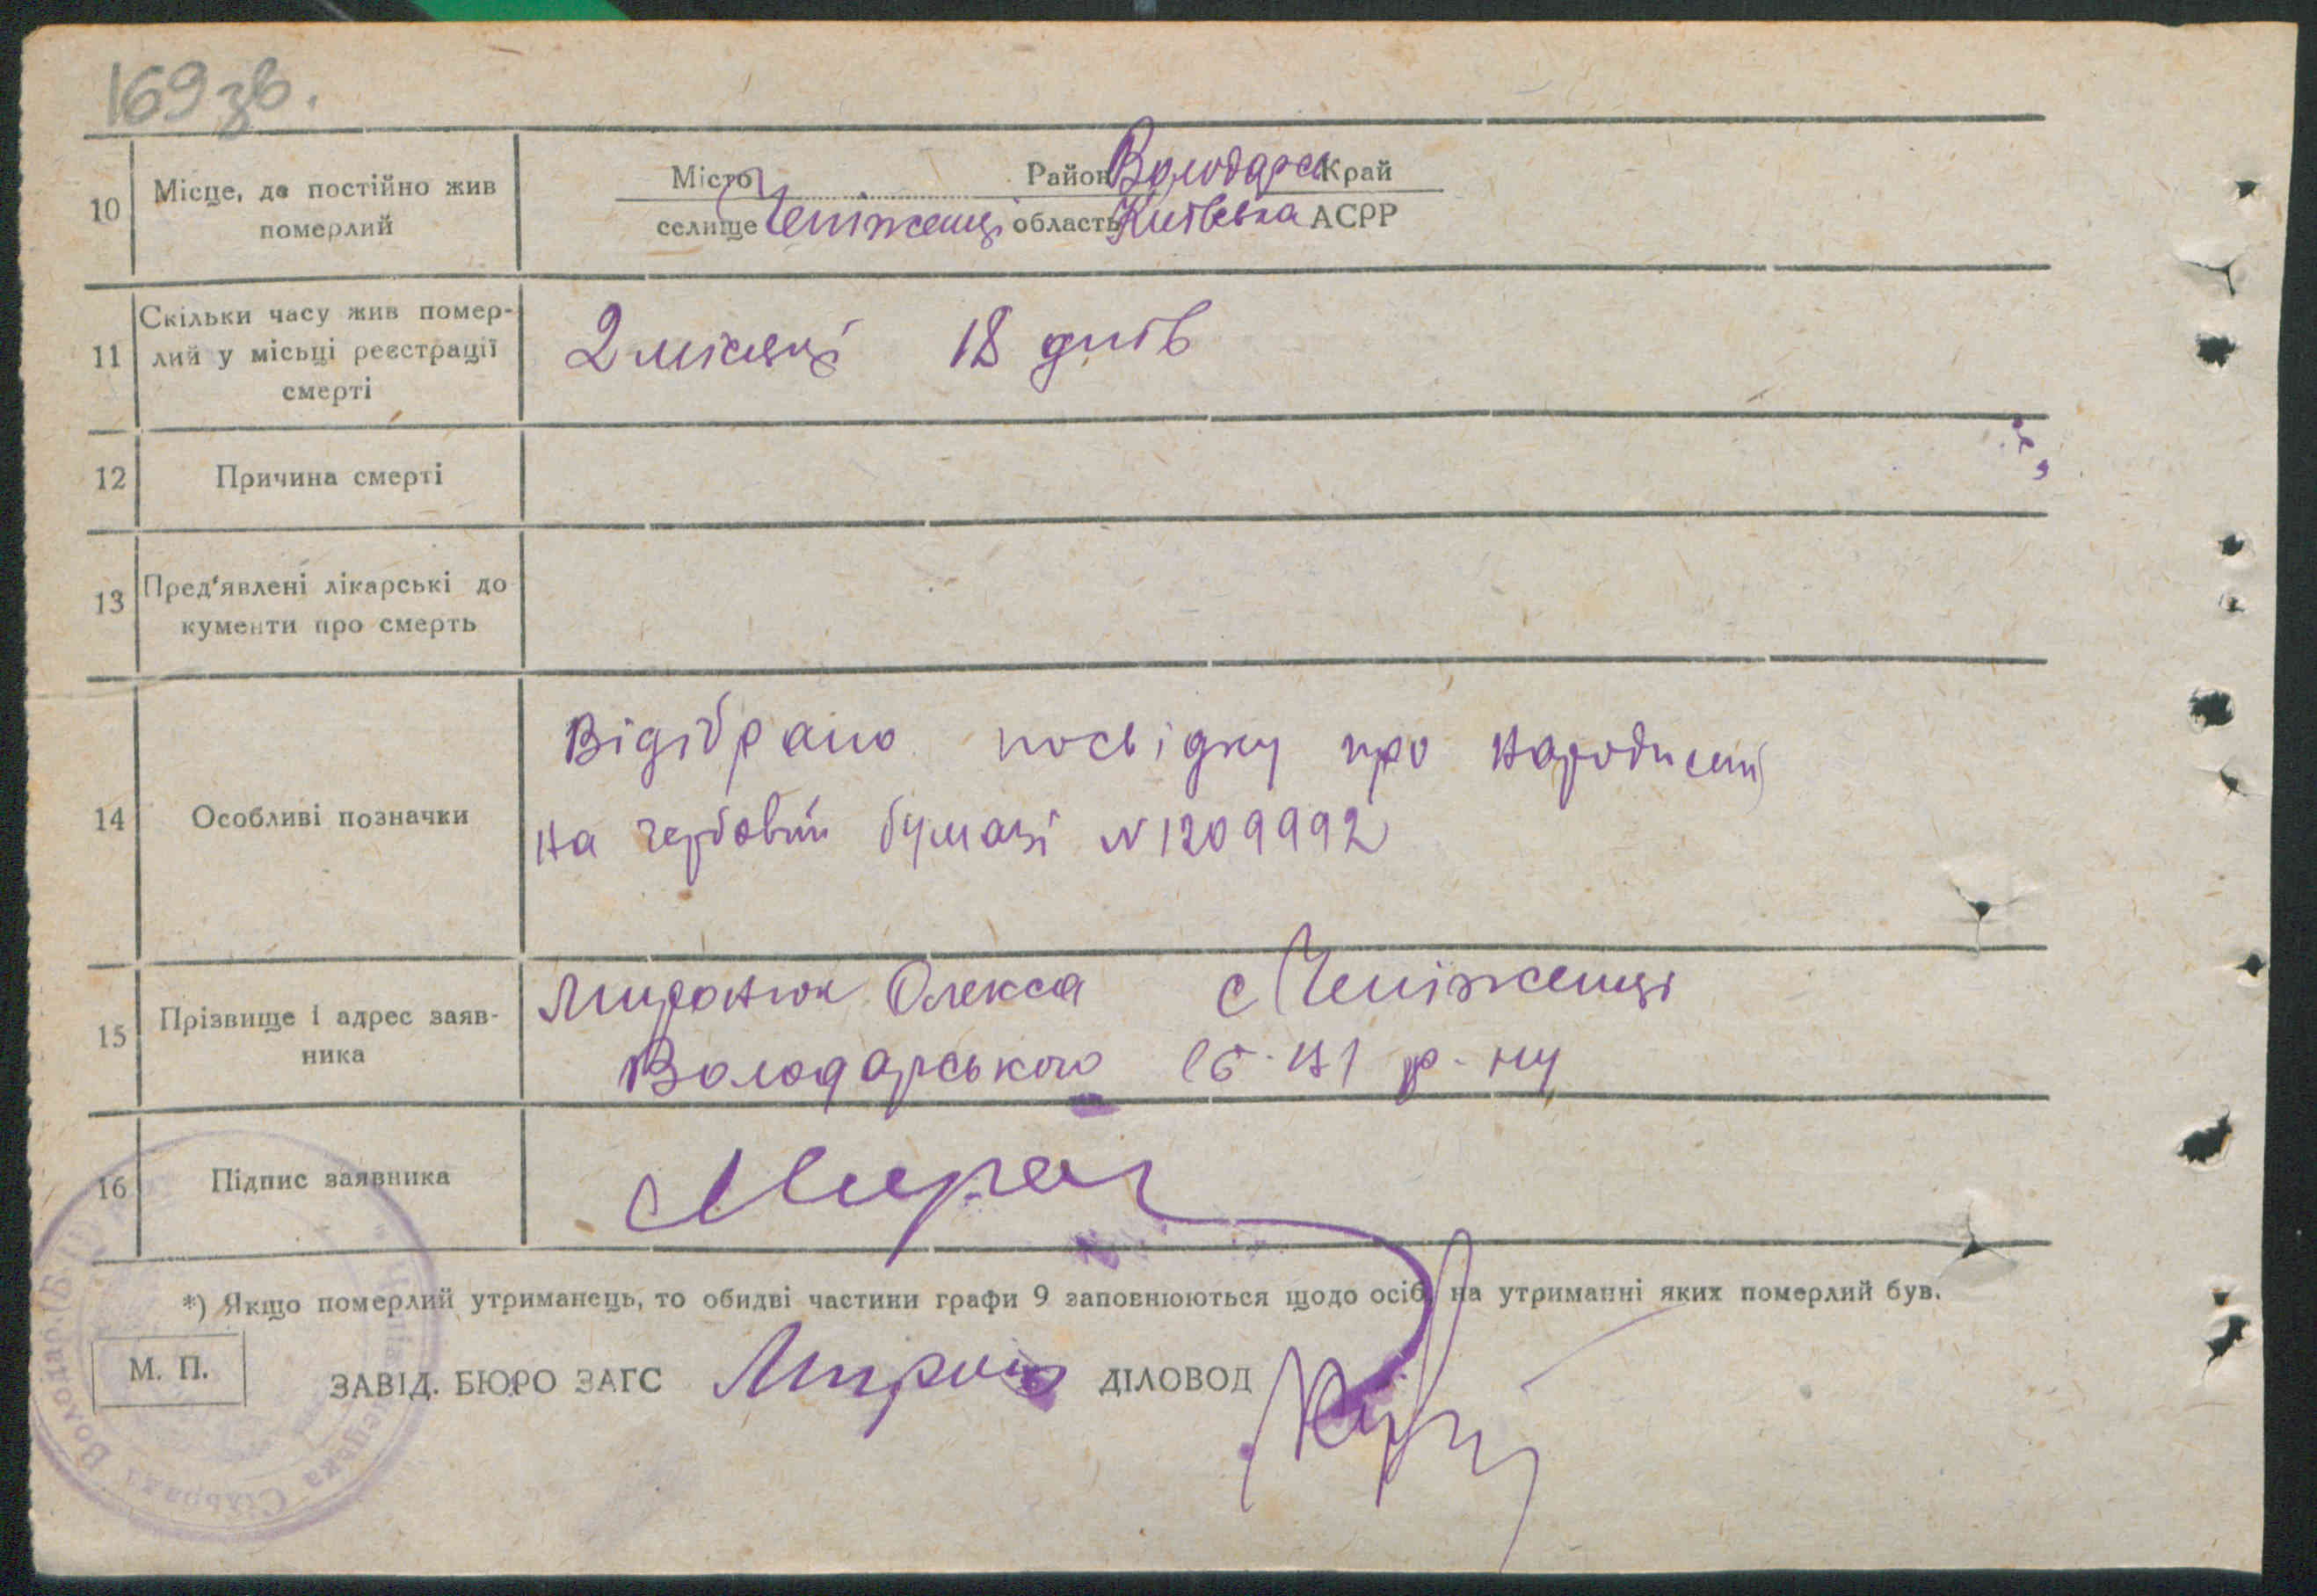 169 зв.
10 Місце, де постійно жив померлий
Місто Район Володарськ Край
селище Чепіженці область Київська АСРР
11 Скільки часу жив помер-
лий у місьці реєстрації
смерті
2 місяці 18 днів
12 Причина смерті
13 Пред'явлені лікарські до
кументи про смерть
14 Особливі позначки
Відібрано посвідку про народження
на гербовій бумазі N 1209992
15 Прізвище і адрес заяв-
ника
Миронюк Олекса с Чепіженці
Володарського р-ну
16 Підпис заявника
*) Якщо померлий утриманець, то обидві частини графи 9 заповнюються щодо осіб, на утриманні яких померлий був.
М. П.
ЗАВІД. БЮРО ЗАГС ДІЛОВОД
Сільрада Володар